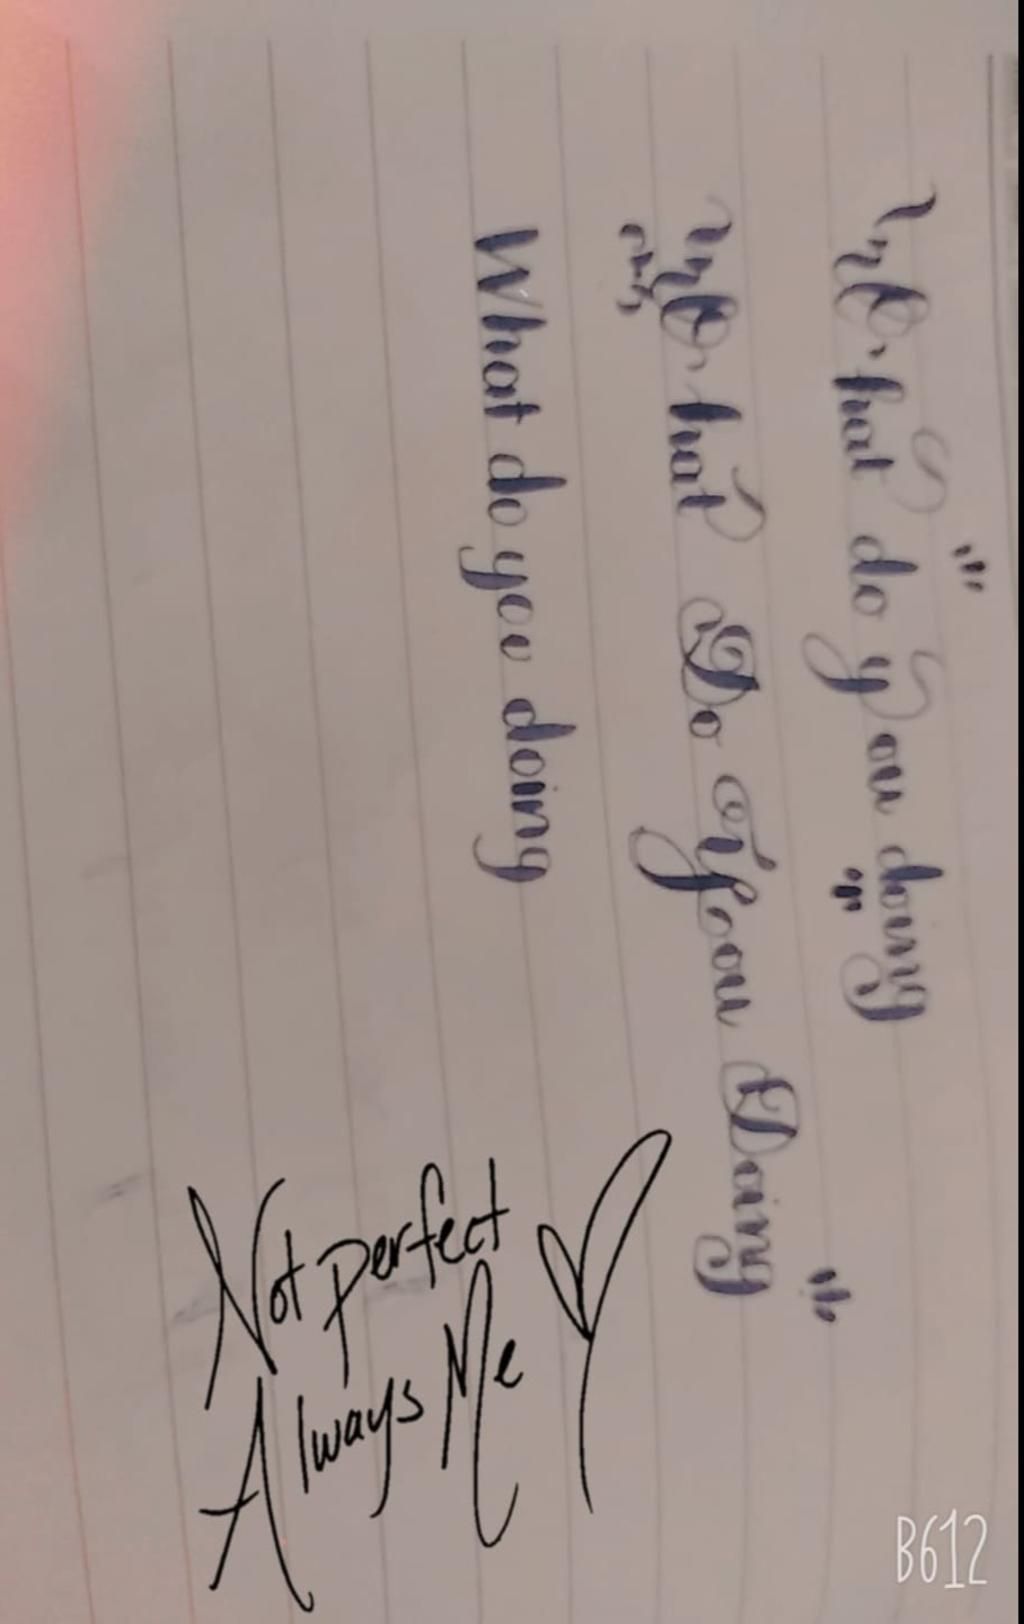 What do you doing
What Do You Doing
What do you doing
Not perfect
Always Me
B612